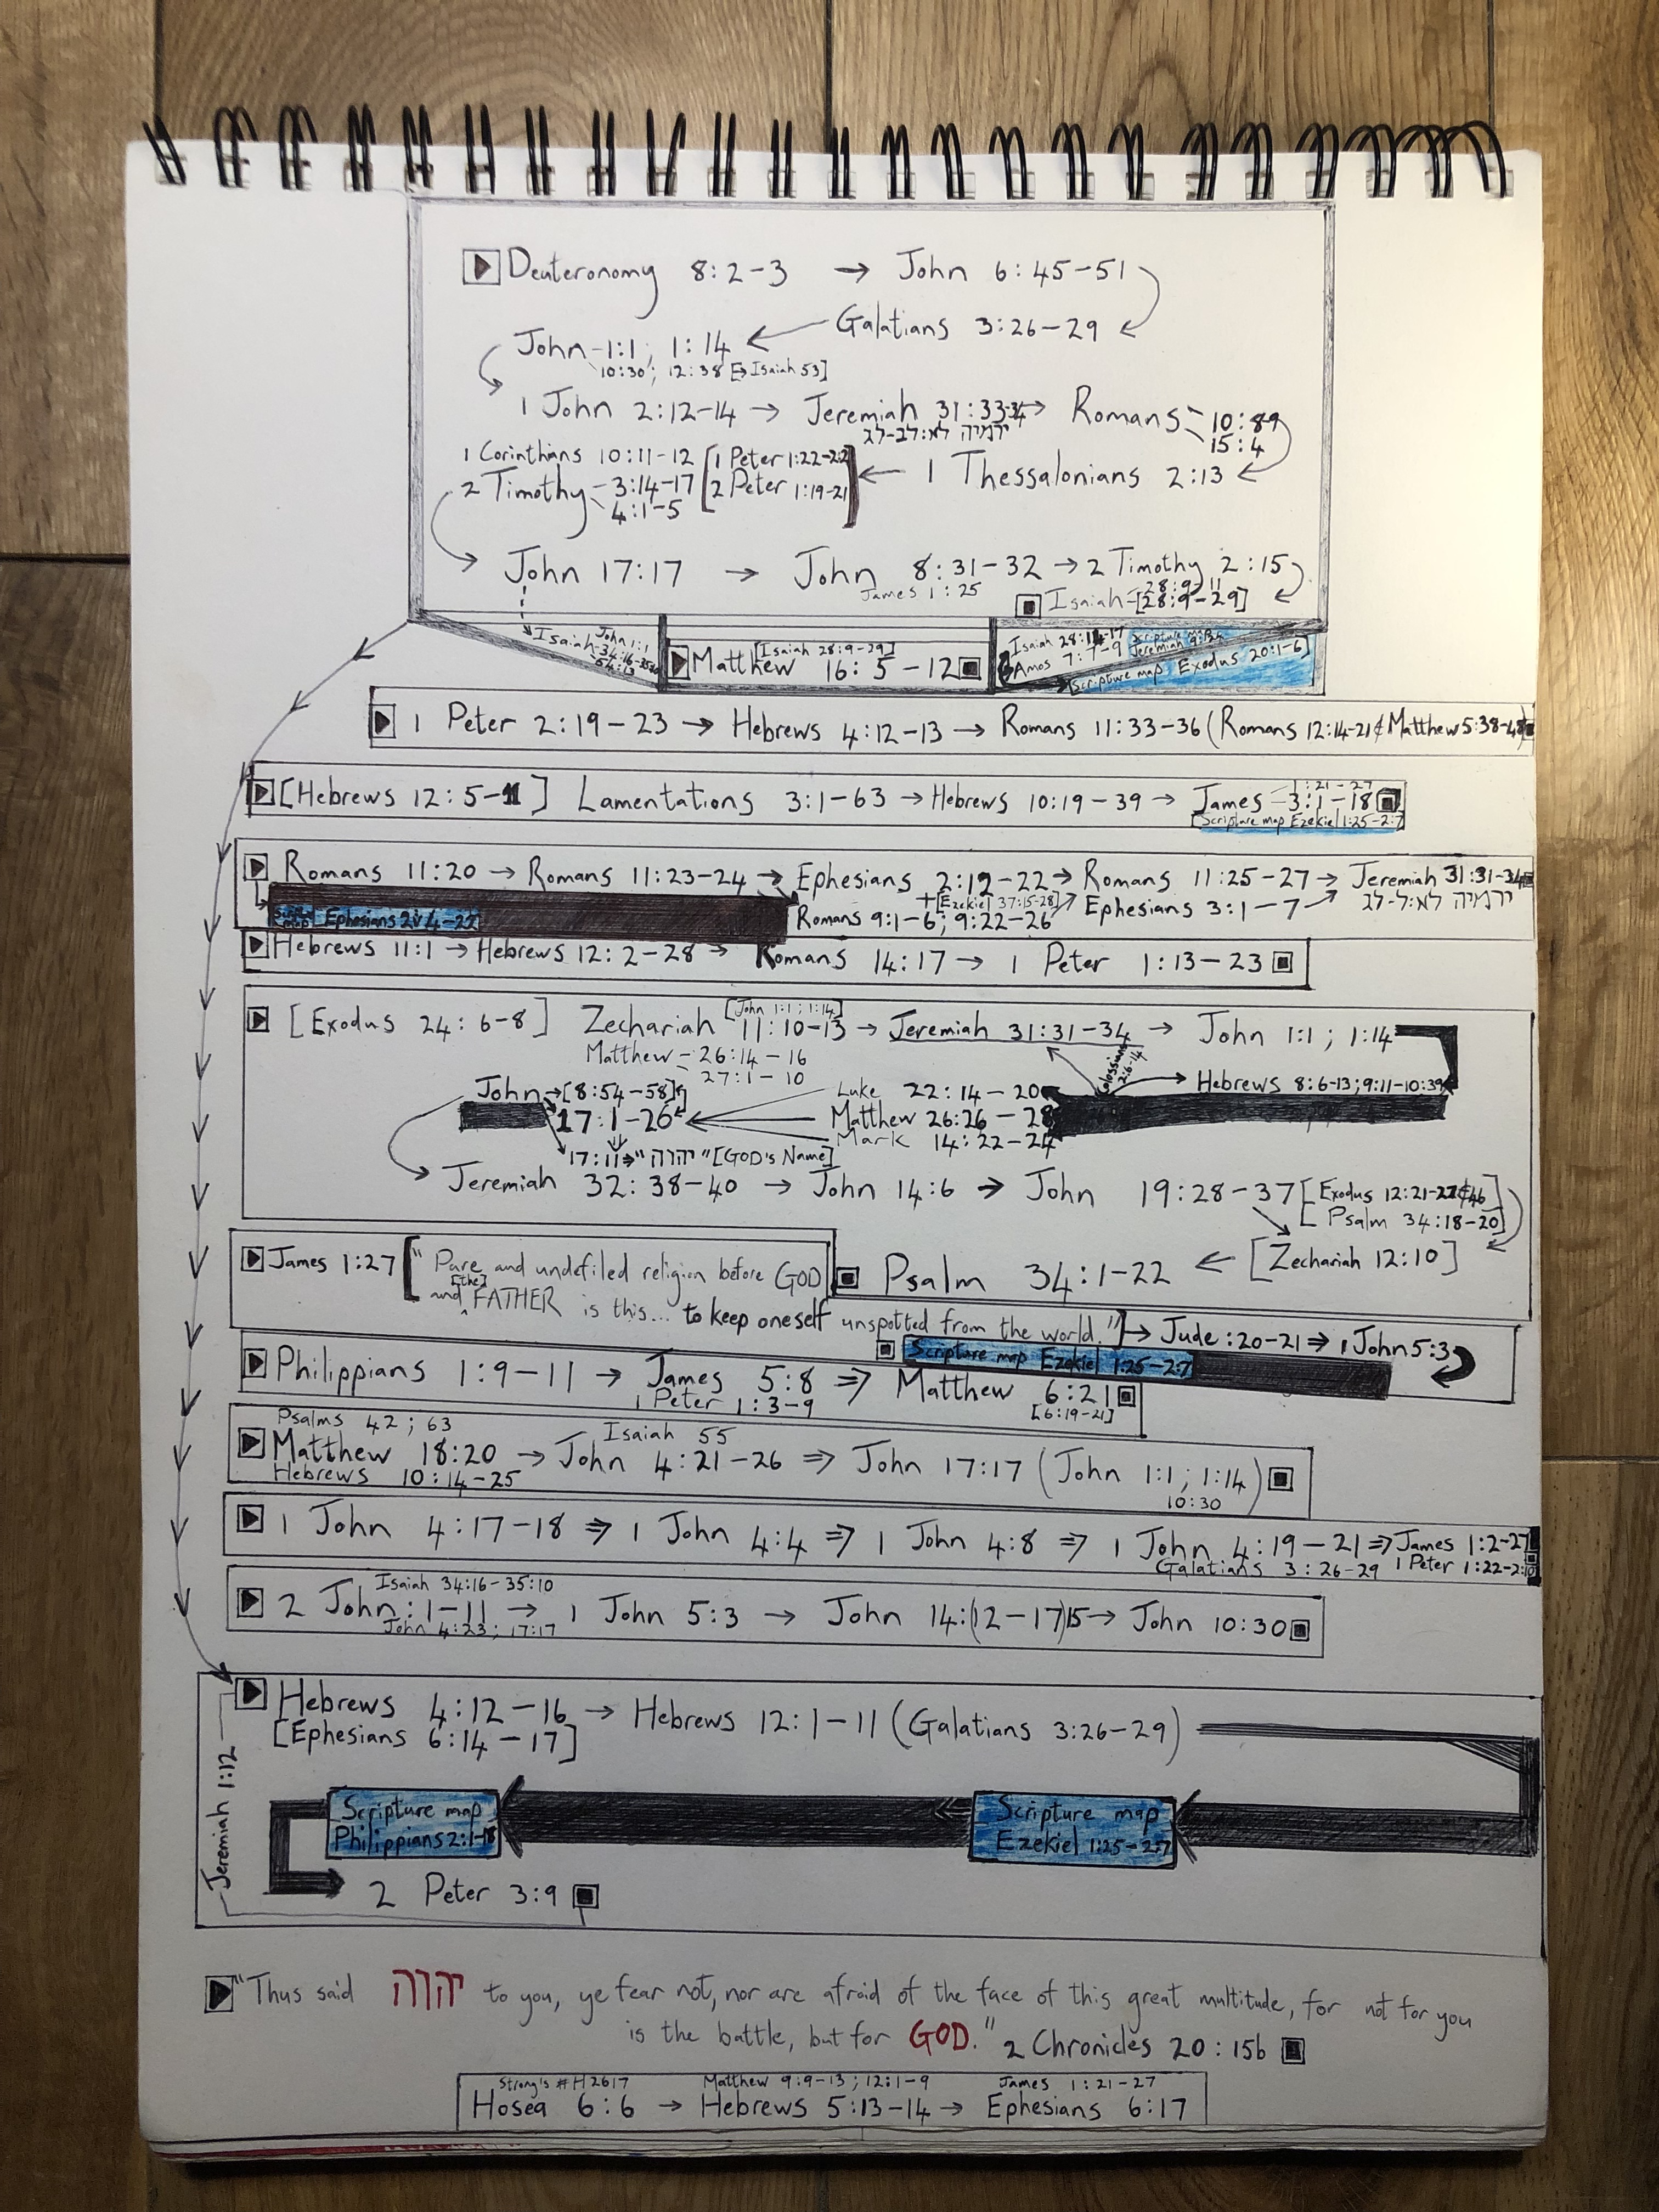 Deuteronomy 8:2-3 → John 6:45-51
Galatians 3:26-29
John 1:1; 1:14
10:30; 12:38 [→ Isaiah 53]
1 John 2:12-14 → Jeremiah 31:33-34 → Romans 10:8-9
ירמיה לא:לב-לג
15:4
1 Corinthians 10:11-12 [1 Peter 1:22-2:2
2 Timothy 3:14-17 2 Peter 1:19-21] ← 1 Thessalonians 2:13
4:1-5
John 17:17 → John 8:31-32 → 2 Timothy 2:15
James 1:25
28:9-11
Isaiah [28:9-29]
John 1:1
Isaiah 34:16-35:10
[Isaiah 28:9-29]
Matthew 16:5-12
Isaiah 28:14-17
Amos 7:7-9
Scripture map Exodus 20:1-6
1 Peter 2:19-23 → Hebrews 4:12-13 → Romans 11:33-36 (Romans 12:14-21 & Matthew 5:38-48)
[Hebrews 12:5-11] Lamentations 3:1-63 → Hebrews 10:19-39 → James 3:1-18
1:21-27
[Scripture map Ezekiel 1:25-2:7
Romans 11:20 → Romans 11:23-24 → Ephesians 2:12-22 → Romans 11:25-27 → Jeremiah 31:31-34
+[Ezekiel 37:15-28]
Scripture map Ephesians 2v4-22
Romans 9:1-6; 9:22-26 Ephesians 3:1-7 → ירמיה לא:ל-לג
Hebrews 11:1 → Hebrews 12:2-28 → Romans 14:17 → 1 Peter 1:13-23
[John 1:1; 1:14]
[Exodus 24:6-8] Zechariah 11:10-13 → Jeremiah 31:31-34 → John 1:1; 1:14
Matthew 26:14-16
27:1-10
Colossians 2:6-14
John → [8:54-58] Luke 22:14-20 → Hebrews 8:6-13; 9:11-10:39
17:1-26 Matthew 26:26-28
Mark 14:22-24
17:11 ⇒ "יהוה" [GOD's Name]
Jeremiah 32:38-40 → John 14:6 → John 19:28-37 [Exodus 12:21-27 & 46]
[Psalm 34:18-20]
James 1:27 ["Pure and undefiled religion before GOD
Psalm 34:1-22 ← [Zechariah 12:10]
and [the] FATHER is this... to keep oneself unspotted from the world."] → Jude :20-21 ⇒ 1 John 5:3
Scripture map Ezekiel 1:25-2:7
Philippians 1:9-11 → James 5:8 ⇒ Matthew 6:21
1 Peter 1:3-9 [6:19-21]
Psalms 42; 63 Isaiah 55
Matthew 18:20 → John 4:21-26 ⇒ John 17:17 (John 1:1; 1:14)
Hebrews 10:14-25 10:30
1 John 4:17-18 ⇒ 1 John 4:4 ⇒ 1 John 4:8 ⇒ 1 John 4:19-21 ⇒ James 1:2-27
Galatians 3:26-29 1 Peter 1:22-2:10
Isaiah 34:16-35:10
2 John :1-11 → 1 John 5:3 → John 14:(12-17)15 → John 10:30
John 4:23; 17:17
Hebrews 4:12-16 → Hebrews 12:1-11 (Galatians 3:26-29)
[Ephesians 6:14-17]
Jeremiah 1:12
Scripture map Scripture map
Philippians 2:1-18 Ezekiel 1:25-2:7
2 Peter 3:9
"Thus said יהוה to you, ye fear not, nor are afraid of the face of this great multitude, for not for you
is the battle, but for GOD." 2 Chronicles 20:15b
Strong's #H2617 Matthew 9:9-13; 12:1-9 James 1:21-27
Hosea 6:6 → Hebrews 5:13-14 → Ephesians 6:17